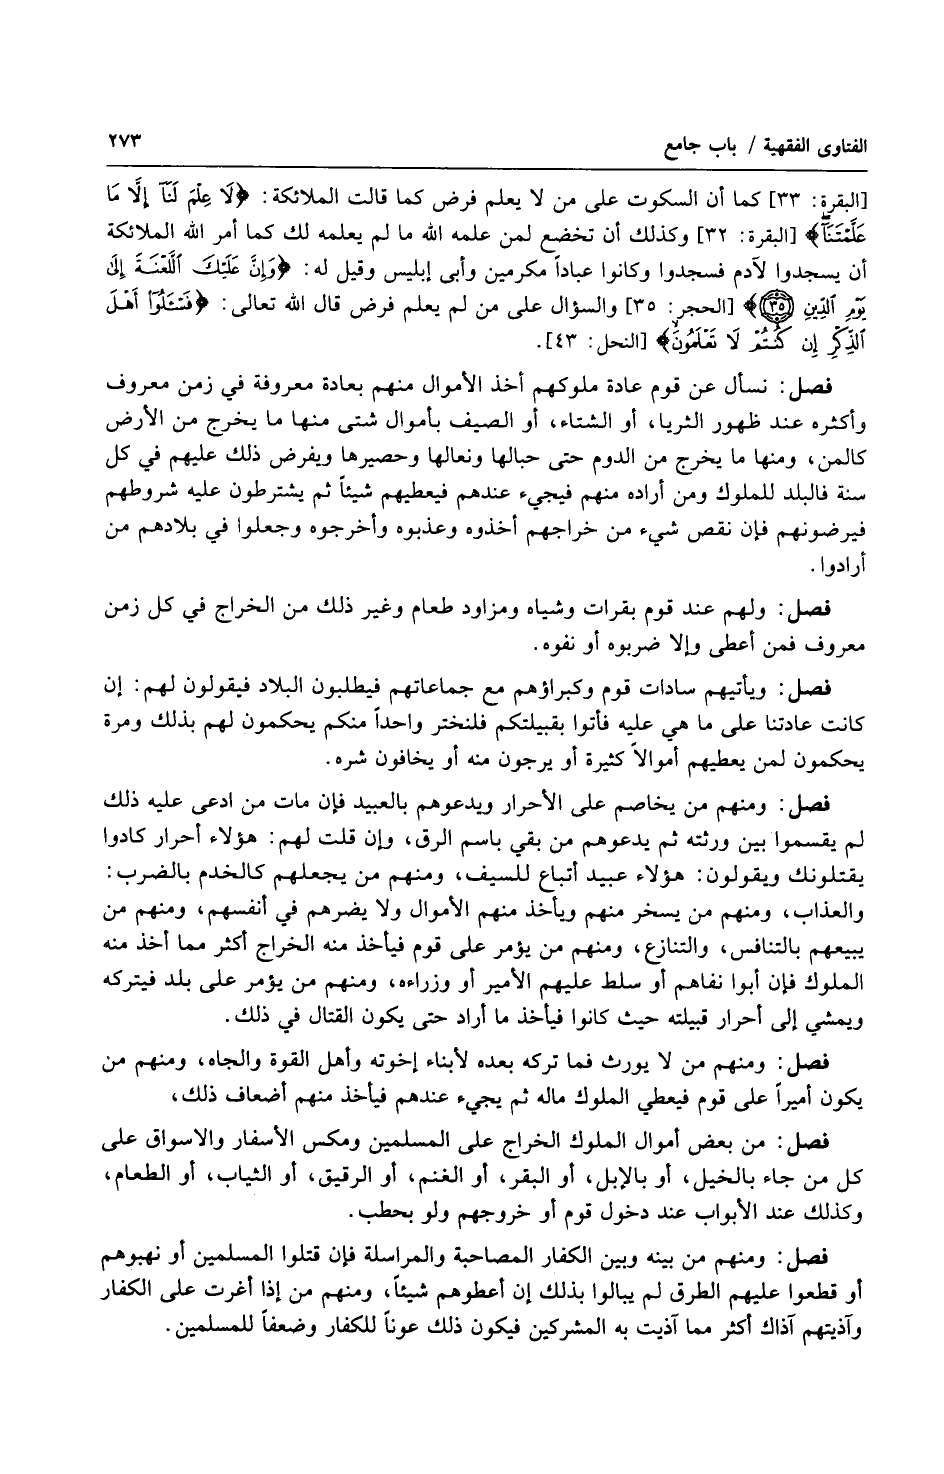 الفتاوى الفقهية / باب جامع ٢٧٣
[البقرة: ٣٣] كما أن السكوت على من لا يعلم فرض كما قالت الملائكة: ﴿لَا عِلْمَ لَنَآ إِلَّا مَا
عَلَّمْتَنَآ﴾ [البقرة: ٣٢] وكذلك أن تخضع لمن علمه الله ما لم يعلمه لك كما أمر الله الملائكة
أن يسجدوا لآدم فسجدوا وكانوا عباداً مكرمين وأبى إبليس وقيل له: ﴿وَإِنَّ عَلَيْكَ ٱللَّعْنَةَ إِلَىٰ
يَوْمِ ٱلدِّينِ ٣٥﴾ [الحجر: ٣٥] والسؤال على من لم يعلم فرض قال الله تعالى: ﴿فَسْـَٔلُوٓا۟ أَهْلَ
ٱلذِّكْرِ إِن كُنتُمْ لَا تَعْلَمُونَ﴾ [النحل: ٤٣].
فصل: نسأل عن قوم عادة ملوكهم أخذ الأموال منهم بعادة معروفة في زمن معروف
وأكثره عند ظهور الثريا، أو الشتاء، أو الصيف بأموال شتى منها ما يخرج من الأرض
كالمن، ومنها ما يخرج من الدوم حتى حبالها ونعالها وحصيرها ويفرض ذلك عليهم في كل
سنة فالبلد للملوك ومن أراده منهم فيجيء عندهم فيعطيهم شيئاً ثم يشترطون عليه شروطهم
فيرضونهم فإن نقص شيء من خراجهم أخذوه وعذبوه وأخرجوه وجعلوا في بلادهم من
أرادوا.
فصل: ولهم عند قوم بقرات وشياه ومزاود طعام وغير ذلك من الخراج في كل زمن
معروف فمن أعطى وإلا ضربوه أو نفوه.
فصل: ويأتيهم سادات قوم وكبراؤهم مع جماعاتهم فيطلبون البلاد فيقولون لهم: إن
كانت عادتنا على ما هي عليه فأتوا بقبيلتكم فلنختر واحداً منكم يحكمون لهم بذلك ومرة
يحكمون لمن يعطيهم أموالاً كثيرة أو يرجون منه أو يخافون شره.
فصل: ومنهم من يخاصم على الأحرار ويدعوهم بالعبيد فإن مات من ادعى عليه ذلك
لم يقسموا بين ورثته ثم يدعوهم من بقي باسم الرق، وإن قلت لهم: هؤلاء أحرار كادوا
يقتلونك ويقولون: هؤلاء عبيد أتباع للسيف، ومنهم من يجعلهم كالخدم بالضرب:
والعذاب، ومنهم من يسخر منهم ويأخذ منهم الأموال ولا يضرهم في أنفسهم، ومنهم من
يبيعهم بالتنافس، والتنازع، ومنهم من يؤمر على قوم فيأخذ منه الخراج أكثر مما أخذ منه
الملوك فإن أبوا نفاهم أو سلط عليهم الأمير أو وزراءه، ومنهم من يؤمر على بلد فيتركه
ويمشي إلى أحرار قبيلته حيث كانوا فيأخذ ما أراد حتى يكون القتال في ذلك.
فصل: ومنهم من لا يورث فما تركه بعده لأبناء إخوته وأهل القوة والجاه، ومنهم من
يكون أميراً على قوم فيعطي الملوك ماله ثم يجيء عندهم فيأخذ منهم أضعاف ذلك،
فصل: من بعض أموال الملوك الخراج على المسلمين ومكس الأسفار والاسواق على
كل من جاء بالخيل، أو بالإبل، أو البقر، أو الغنم، أو الرقيق، أو الثياب، أو الطعام،
وكذلك عند الأبواب عند دخول قوم أو خروجهم ولو بحطب.
فصل: ومنهم من بينه وبين الكفار المصاحبة والمراسلة فإن قتلوا المسلمين أو نهبوهم
أو قطعوا عليهم الطرق لم يبالوا بذلك إن أعطوهم شيئاً، ومنهم من إذا أغرت على الكفار
وآذيتهم آذاك أكثر مما آذيت به المشركين فيكون ذلك عوناً للكفار وضعفاً للمسلمين.